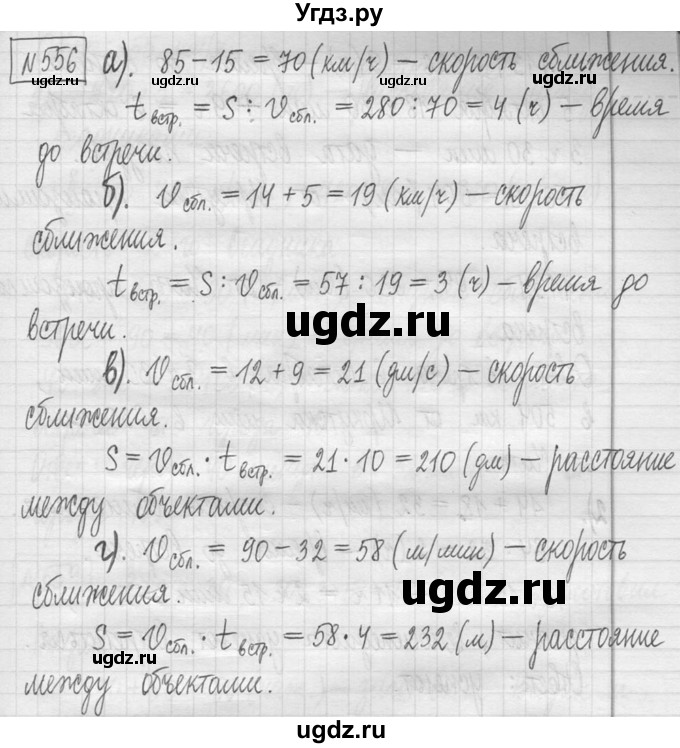 Угдз.ру
№556 а). 85-15 = 70 (км/ч) – скорость сближения.
t встр. = S : V сбл. = 280 : 70 = 4 (ч) – время
до встречи.
б). V сбл. = 14 + 5 = 19 (км/ч) – скорость
сближения.
t встр. = S : V сбл. = 57 : 19 = 3 (ч) – время до
встречи.
ugdz.ru
в). V сбл. = 12 + 9 = 21 (дм/с) – скорость
сближения.
S = V сбл. · t встр. = 21 · 10 = 210 (дм) – расстояние
между объектами.
г). V сбл. = 90 - 32 = 58 (м/мин) – скорость
сближения.
ugdz.ru
S = V сбл. · t встр. = 58 · 4 = 232 (м) – расстояние
между объектами.
ugdz.ru
ugdz.ru
ugdz.ru
ugdz.ru
ugdz.ru
ugdz.ru
ugdz.ru
ugdz.ru
ugdz.ru